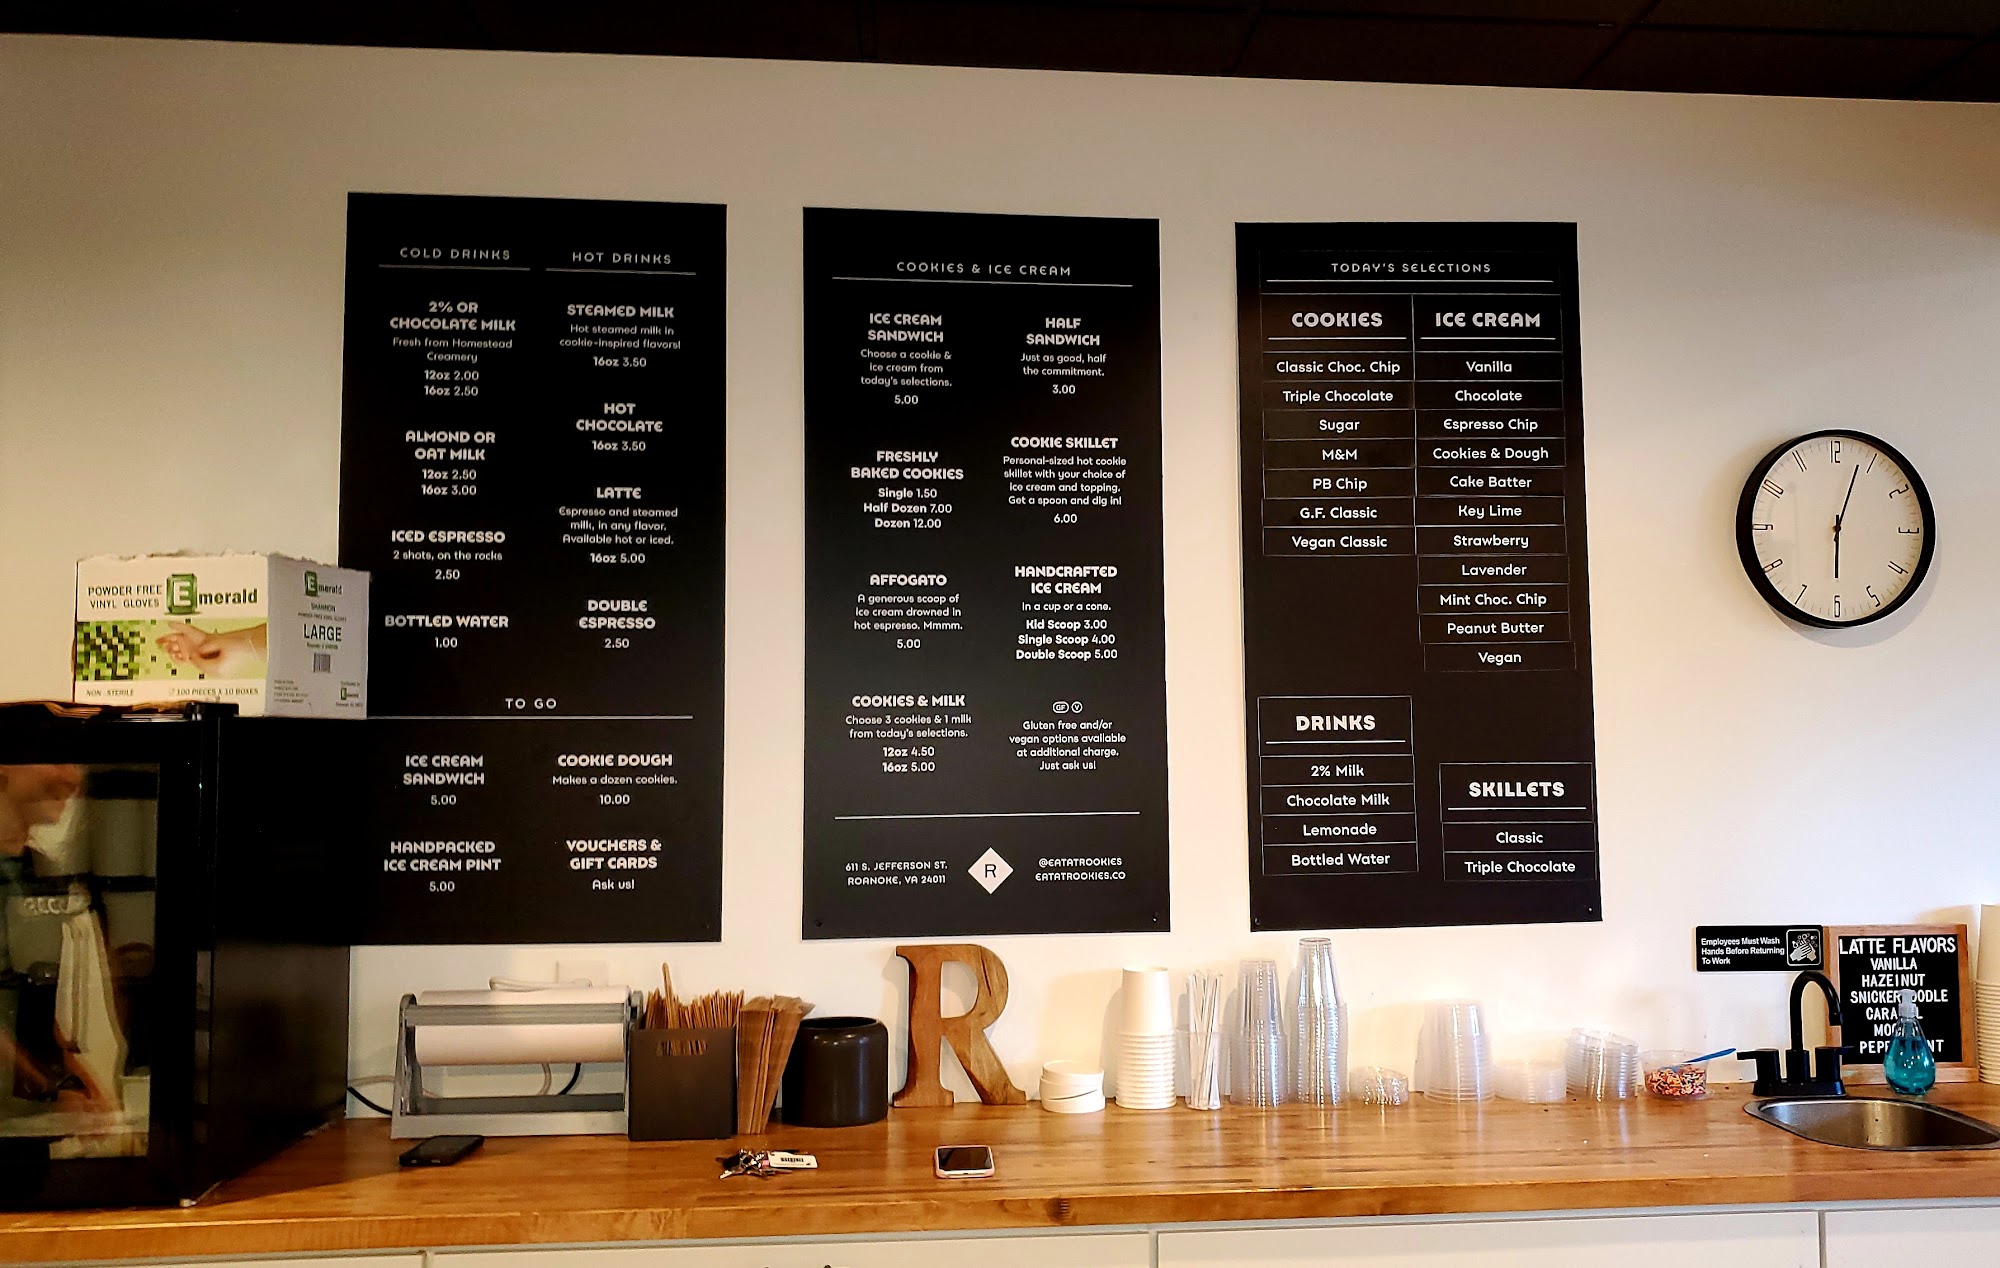 COLD DRINKS
2% OR
CHOCOLATE MILK
Fresh from Homestead
Creamery
12oz 2.00
16oz 2.50
ALMOND OR
OAT MILK
12oz 2.50
16oz 3.00
ICED ESPRESSO
2 shots, on the rocks
2.50
BOTTLED WATER
1.00
HOT DRINKS
STEAMED MILK
Hot steamed milk in
cookie-inspired flavors!
16oz 3.50
HOT
CHOCOLATE
16oz 3.50
LATTE
Espresso and steamed
milk, in any flavor.
Available hot or iced.
16oz 5.00
DOUBLE
ESPRESSO
2.50
TO GO
ICE CREAM
SANDWICH
5.00
HANDPACKED
ICE CREAM PINT
5.00
COOKIE DOUGH
Makes a dozen cookies.
10.00
VOUCHERS &
GIFT CARDS
Ask us!
COOKIES & ICE CREAM
ICE CREAM
SANDWICH
Choose a cookie &
ice cream from
today's selections.
5.00
FRESHLY
BAKED COOKIES
Single 1.50
Half Dozen 7.00
Dozen 12.00
AFFOGATO
A generous scoop of
ice cream drowned in
hot espresso. Mmmm.
5.00
COOKIES & MILK
Choose 3 cookies & 1 milk
from today's selections.
12oz 4.50
16oz 5.00
HALF
SANDWICH
Just as good, half
the commitment.
3.00
COOKIE SKILLET
Personal-sized hot cookie
skillet with your choice of
ice cream and topping.
Get a spoon and dig in!
6.00
HANDCRAFTED
ICE CREAM
In a cup or a cone.
Kid Scoop 3.00
Single Scoop 4.00
Double Scoop 5.00
GF V
Gluten free and/or
vegan options available
at additional charge.
Just ask us!
611 S. JEFFERSON ST.
ROANOKE, VA 24011
R
@EATATROOKIES
EATATROOKIES.CO
TODAY'S SELECTIONS
COOKIES
Classic Choc. Chip
Triple Chocolate
Sugar
M&M
PB Chip
G.F. Classic
Vegan Classic
ICE CREAM
Vanilla
Chocolate
Espresso Chip
Cookies & Dough
Cake Batter
Key Lime
Strawberry
Lavender
Mint Choc. Chip
Peanut Butter
Vegan
DRINKS
2% Milk
Chocolate Milk
Lemonade
Bottled Water
SKILLETS
Classic
Triple Chocolate
12
1
2
3
4
5
6
7
8
9
10
11
POWDER FREE
VINYL GLOVES
Emerald
NON-STERILE
100 PIECES X 10 BOXES
Emerald
SHANNON
LARGE
R
Employees Must Wash
Hands Before Returning
To Work
LATTE FLAVORS
VANILLA
HAZELNUT